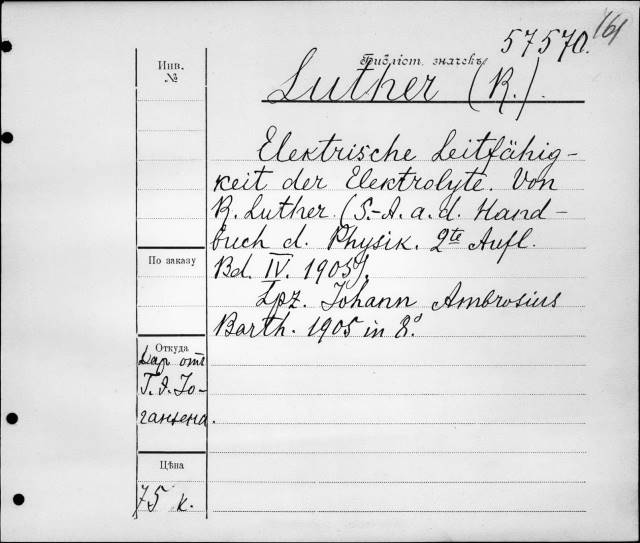 161
57570.
Библіот. значекъ
Luther (R.).
Elektrische Leitfähig-
keit der Elektrolyte. Von
R. Luther. (S.-A. a. d. Hand-
buch d. Physik. 2te Aufl.
Bd. IV. 1905).
Lpz. Johann Ambrosius
Barth. 1905 in 8°.
Инв.
№
По заказу
Откуда
Дар отъ
Г. І. Іо-
гансена.
Цѣна
75 к.